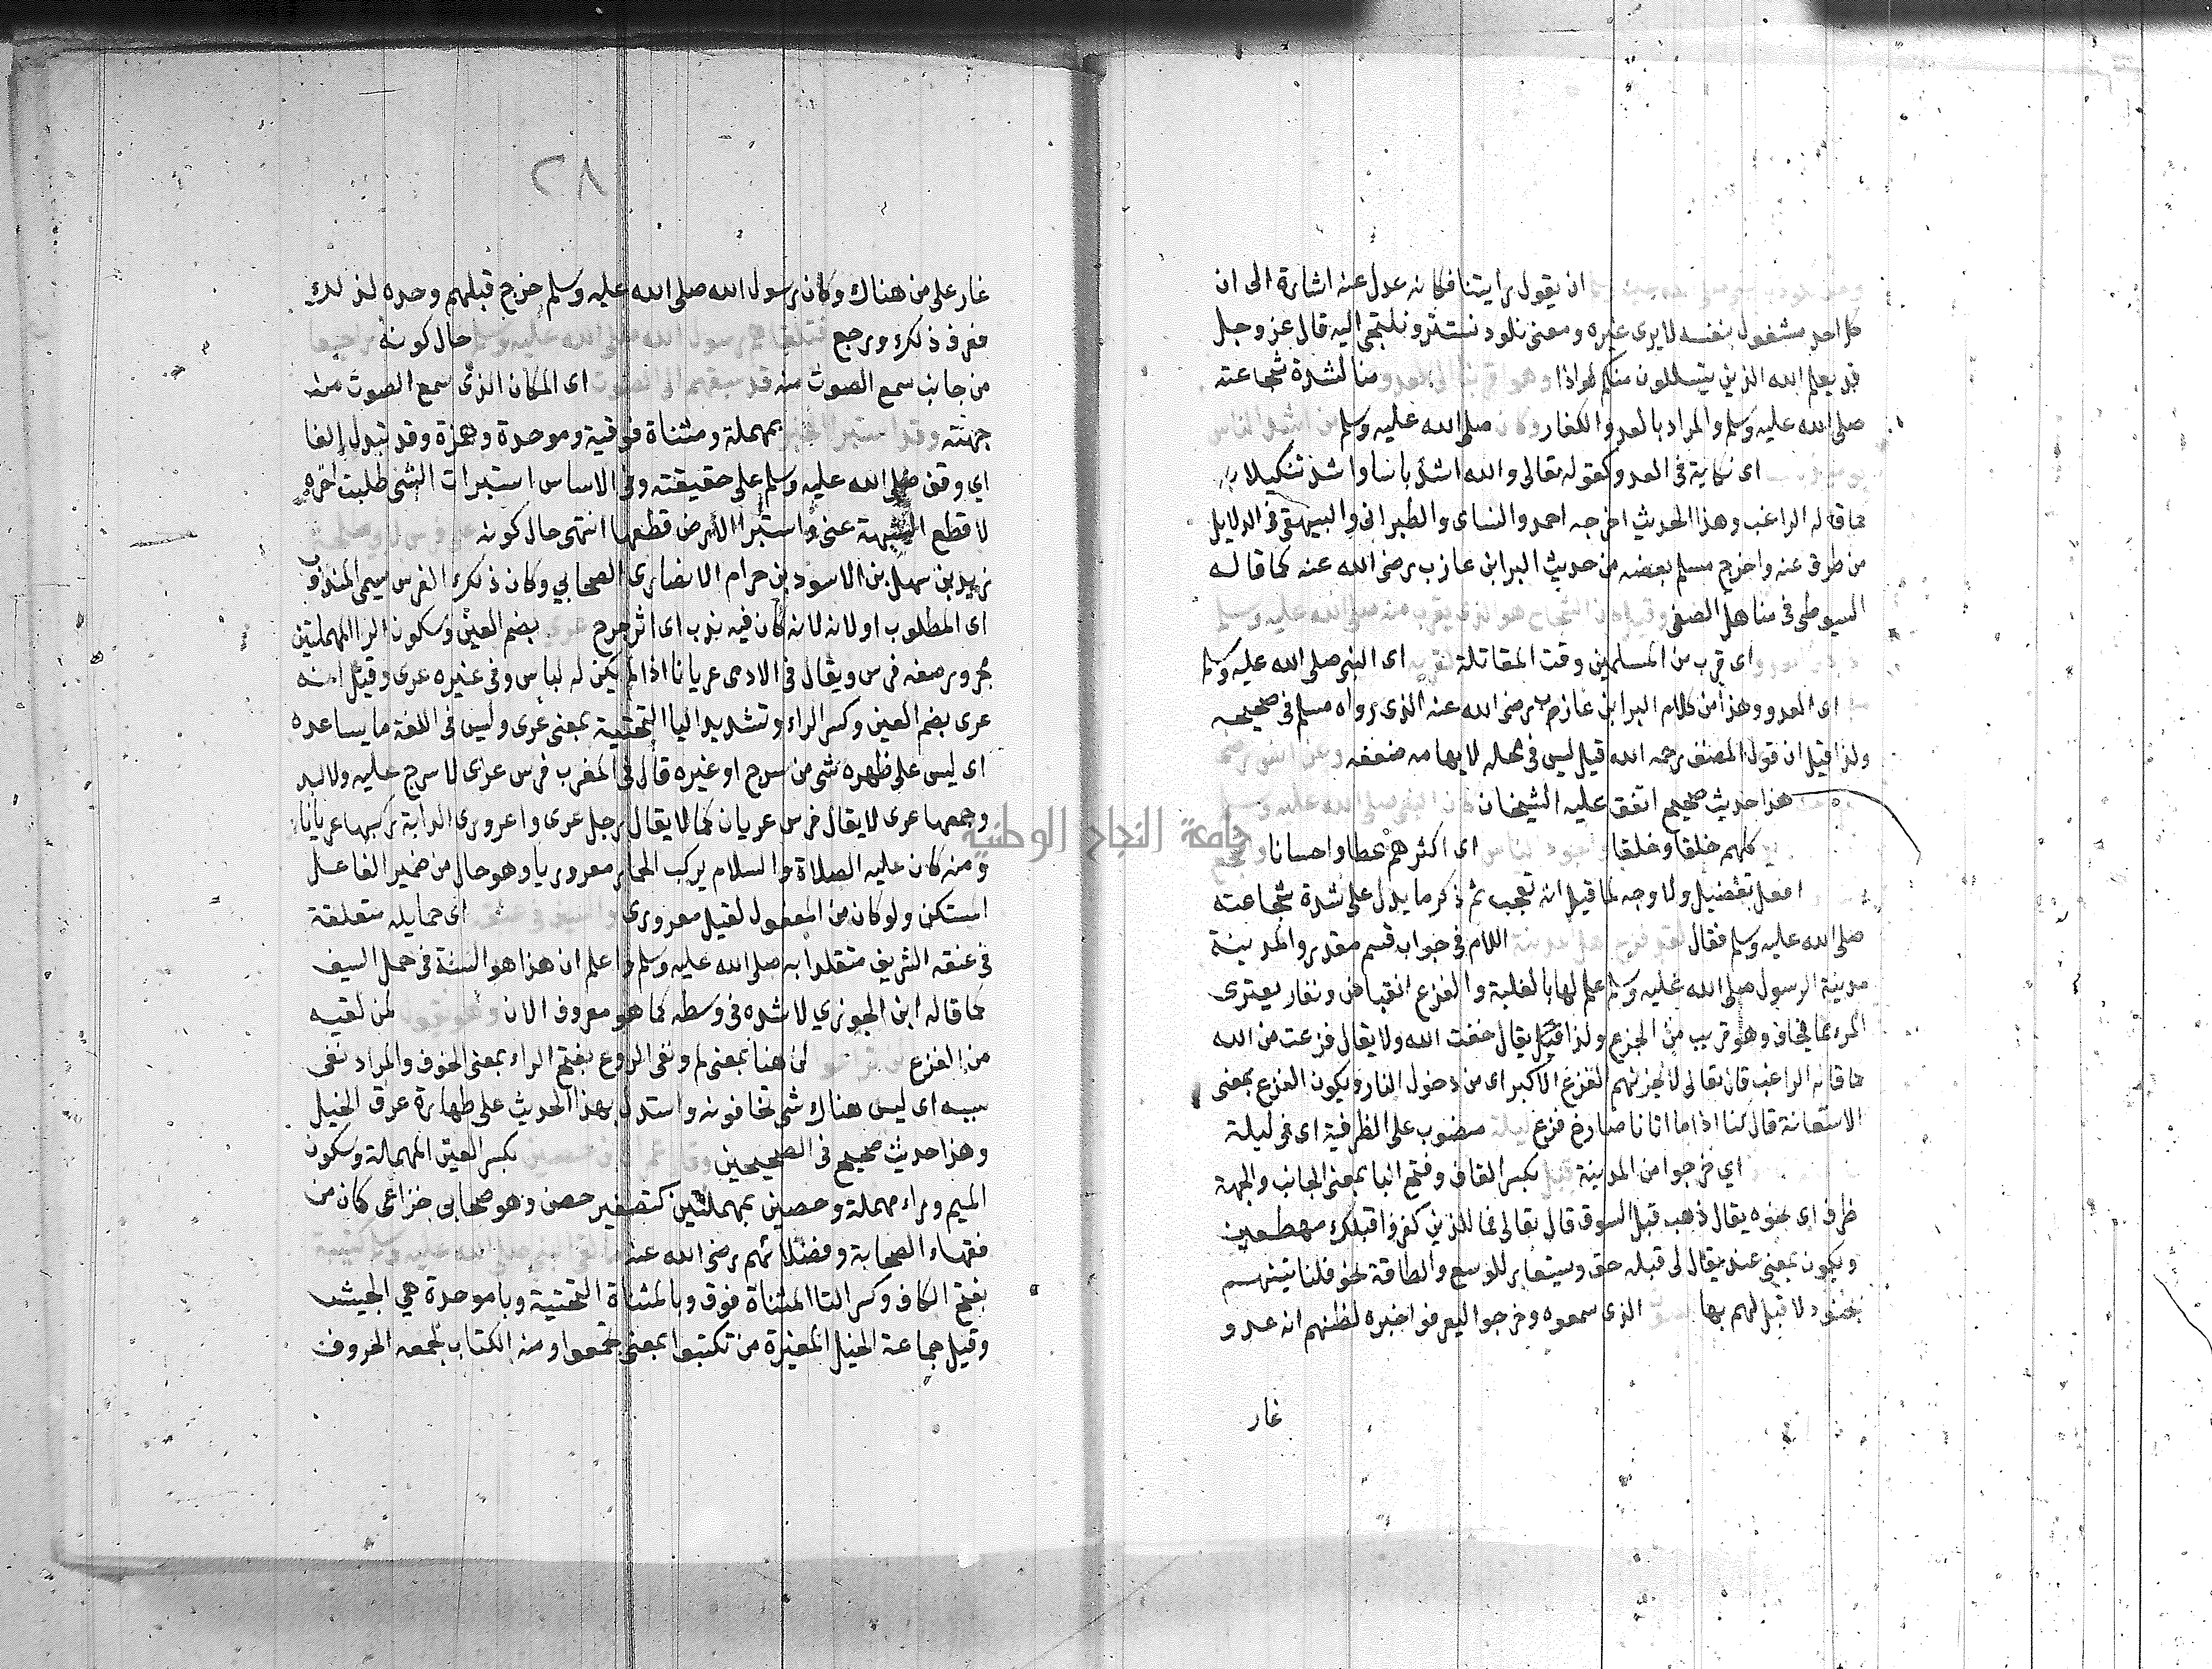 ان يقول رايتنا فكانه عدل عنه اشارة الى ان
كل احد مشغول بنفسه لا يرى غيره ومعنى نلوذ نستتر ونلتجى اليه قال عز وجل
قد يعلم الله الذين يتسللون منكم لواذا وهو اقربنا الى العدو منا لشدة شجاعته
صلى الله عليه وسلم والمراد بالعدو الكفار وكان صلى الله عليه وسلم من اشد الناس
اى نكاية فى العدو كقوله تعالى والله اشد باسا واشد تنكيلا
مما قاله الراغب وهذا الحديث اخرجه احمد والنساى والطبرانى والبيهقى فى الدلايل
من طرق عنه واخرج مسلم بعضه من حديث البرا بن عازب رضى الله عنه كما قاله
السيوطى فى مناهل الصفى وقيل كان الشجاع هو الذى يقرب منه صلى الله عليه وسلم
اى قرب من المسلمين وقت المقاتلة لقربه اى النبى صلى الله عليه وسلم
اى العدو وهذا من كلام البرا بن عازب رضى الله عنه الذى رواه مسلم فى صحيحه
ولذا قيل ان قول المصنف رحمه الله قيل ليس فى محله لايهامه ضعفه وعن انس رضى
هذا حديث صحيح اتفق عليه الشيخان كان النبى صلى الله عليه وسلم
كلهم خلقا وخلقا واجود الناس اى اكثرهم عطا واحسانا واشجع
افعل تفضيل ولا وجه لما قيل انه تعجب ثم ذكر ما يدل على شدة شجاعته
صلى الله عليه وسلم فقال لقد فزع اهل المدينة اللام فى جواب قسم مقدر والمدينة
مدينة الرسول صلى الله عليه وسلم علم لها بالغلبة والفزع انقباض ونفار يعترى
المرء مما يخاف وهو قريب من الجزع ولذا قيل يقال خفت الله ولا يقال فزعت من الله
مما قاله الراغب قال تعالى لا يحزنهم الفزع الاكبر اى من دخول النار ويكون الفزع بمعنى
الاستعانة قال كنا اذا ما اتانا صارخ فزع ليلة منصوب على الظرفية اى فى ليلة
اي خرجوا من المدينة قبل بكسر القاف وفتح البا بمعنى الجانب والجهة
ظرف اى نحوه يقال ذهب قبل السوق قال تعالى فما للذين كفروا قبلك مهطعين
ويكون بمعنى عند يقال لى قبله حق ويستعار للوسع والطاقة نحو فلناتينهم
بجنود لا قبل لهم بها الصوت الذى سمعوه وخرجوا ليعرفوا خبره لظنهم انه عدو
غار
٢٨
غار على من هناك وكان رسول الله صلى الله عليه وسلم خرج قبلهم وحده لذلك
فعرف ذلك ورجع فتلقاهم رسول الله صلى الله عليه وسلم حال كونه راجعا
من جانب سمع الصوت منه قد سبقهم الى الصوت اى المكان الذى سمع الصوت من
جهته وقد استبرا الخبر بمهملة ومثناة فوقية وموحدة وهمزة وقد تبدل الفا
اي وقف صلى الله عليه وسلم على حقيقته وفى الاساس استبرات الشى طلبت اخره
لا قطع الشبهة عنى واستبرا الارض قطعها انتهى حال كونه على فرس لابى طلحة
زيد بن سهل بن الاسود بن حرام الانصارى الصحابي وكان ذلك الفرس يسمى المندوب
اى المطلوب او لانه لانه كان فيه ندب اى اثر جرح عرى بضم العين وسكون الرا المهملتين
مجرور صفه فرس ويقال فى الادمى عريانا اذا لم يكن له لباس وفى غيره عرى وقيل انه
عرى بضم العين وكسر الراء وتشديد اليا التحتية بمعنى عرى وليس فى اللغة ما يساعده
اى ليس على ظهره شى من سرج او غيره قال فى المغرب فرس عرى لا سرج عليه ولا لبد
وجمعها عرى لا يقال فرس عريان كما لا يقال رجل عرى واعرورى الدابة ركبها عريانا
ومنه كان عليه الصلاة والسلام يركب الحمار معروريا وهو حال من ضمير الفاعل
المستكن ولو كان من المفعول لقيل معرورى والسيف فى عنقه اى حمايله متعلقة
فى عنقه الشريف متقلدا به صلى الله عليه وسلم واعلم ان هذا هو السنة فى حمل السيف
كما قاله ابن الجوزي لا شده فى وسطه كما هو معروف الان وهو يقول لمن لقيه
من الفزع لن تراعوا لن هنا بمعنى لم ونفى الروع بفتح الراء بمعنى الخوف والمراد نفى
سببه اى ليس هناك شى تخافونه واستدل بهذا الحديث على طهارة عرق الخيل
وهذا حديث صحيح فى الصحيحين وقال عمران بن حصين بكسر العين المهملة وسكون
الميم وراء مهملة وحصين بمهملتين كتصغير حصن وهو صحابى خزاعى كان من
فقهاء الصحابة وفضلائهم رضى الله عنه ما لقى النبى صلى الله عليه وسلم كتيبة
بفتح الكاف وكسر التا المثناة فوق وبالمثناة التحتية وبا موحدة هي الجيش
وقيل جماعة الخيل المغيرة من تكتبوا بمعنى تجمعوا ومنه الكتاب لجمعه الحروف
جامعة النجاح الوطنية